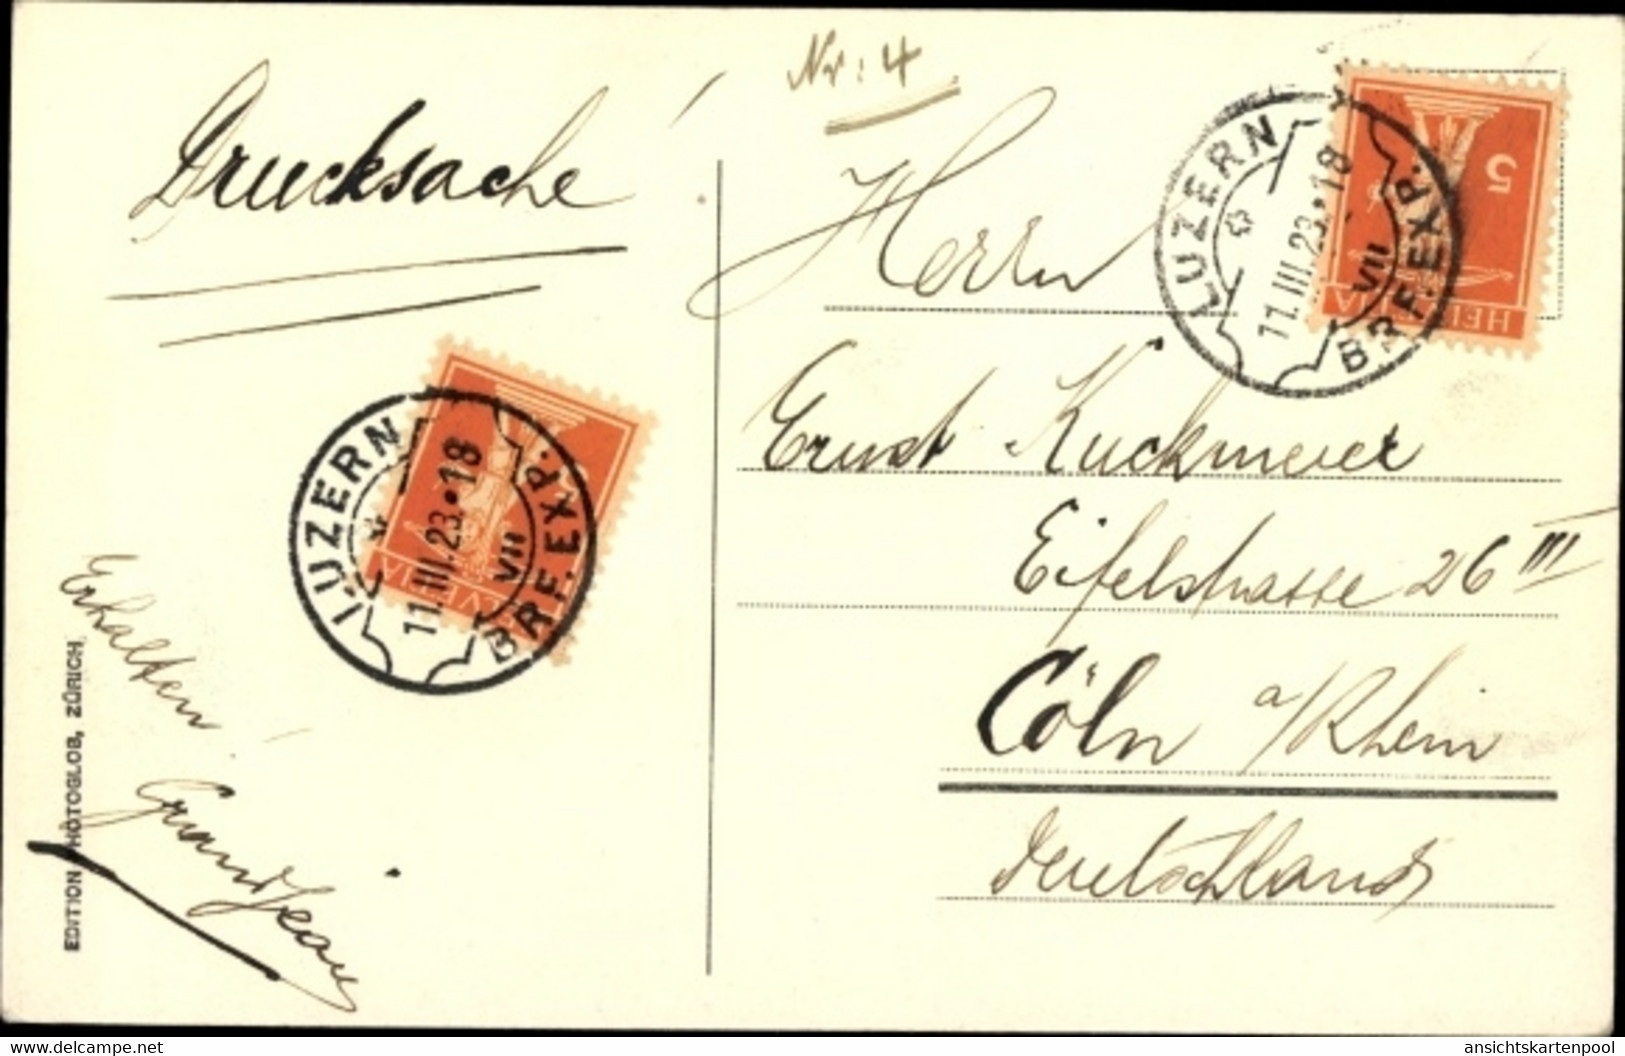 Nr: 4
Drucksache!
Herrn
Ernst Kuckmeier
Eifelstrasse 26 III
Cöln a/Rhein
Deutschland
LUZERN
11.III.23.•18
VII
BRF. EXP.
5
HELVETIA
LUZERN
11.III.23.•18
VII
BRF. EXP.
HELVETIA
Erhalten!
Grandjean
EDITION PHOTOGLOB, ZÜRICH
https://www.delcampe.net
ansichtskartenpool